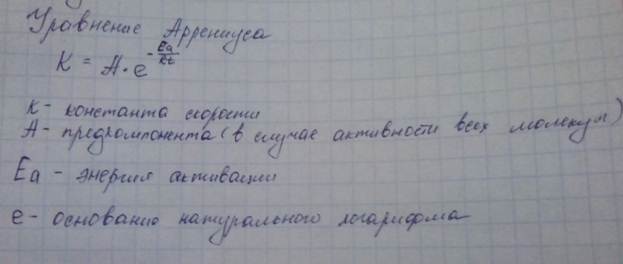 Уравнение Аррениуса
K = A·e^-Ea/Rt
K - константа скорости
A - предкомпонента (в случае активности всех молекул)
Ea - энергия активации
e - основание натурального логарифома